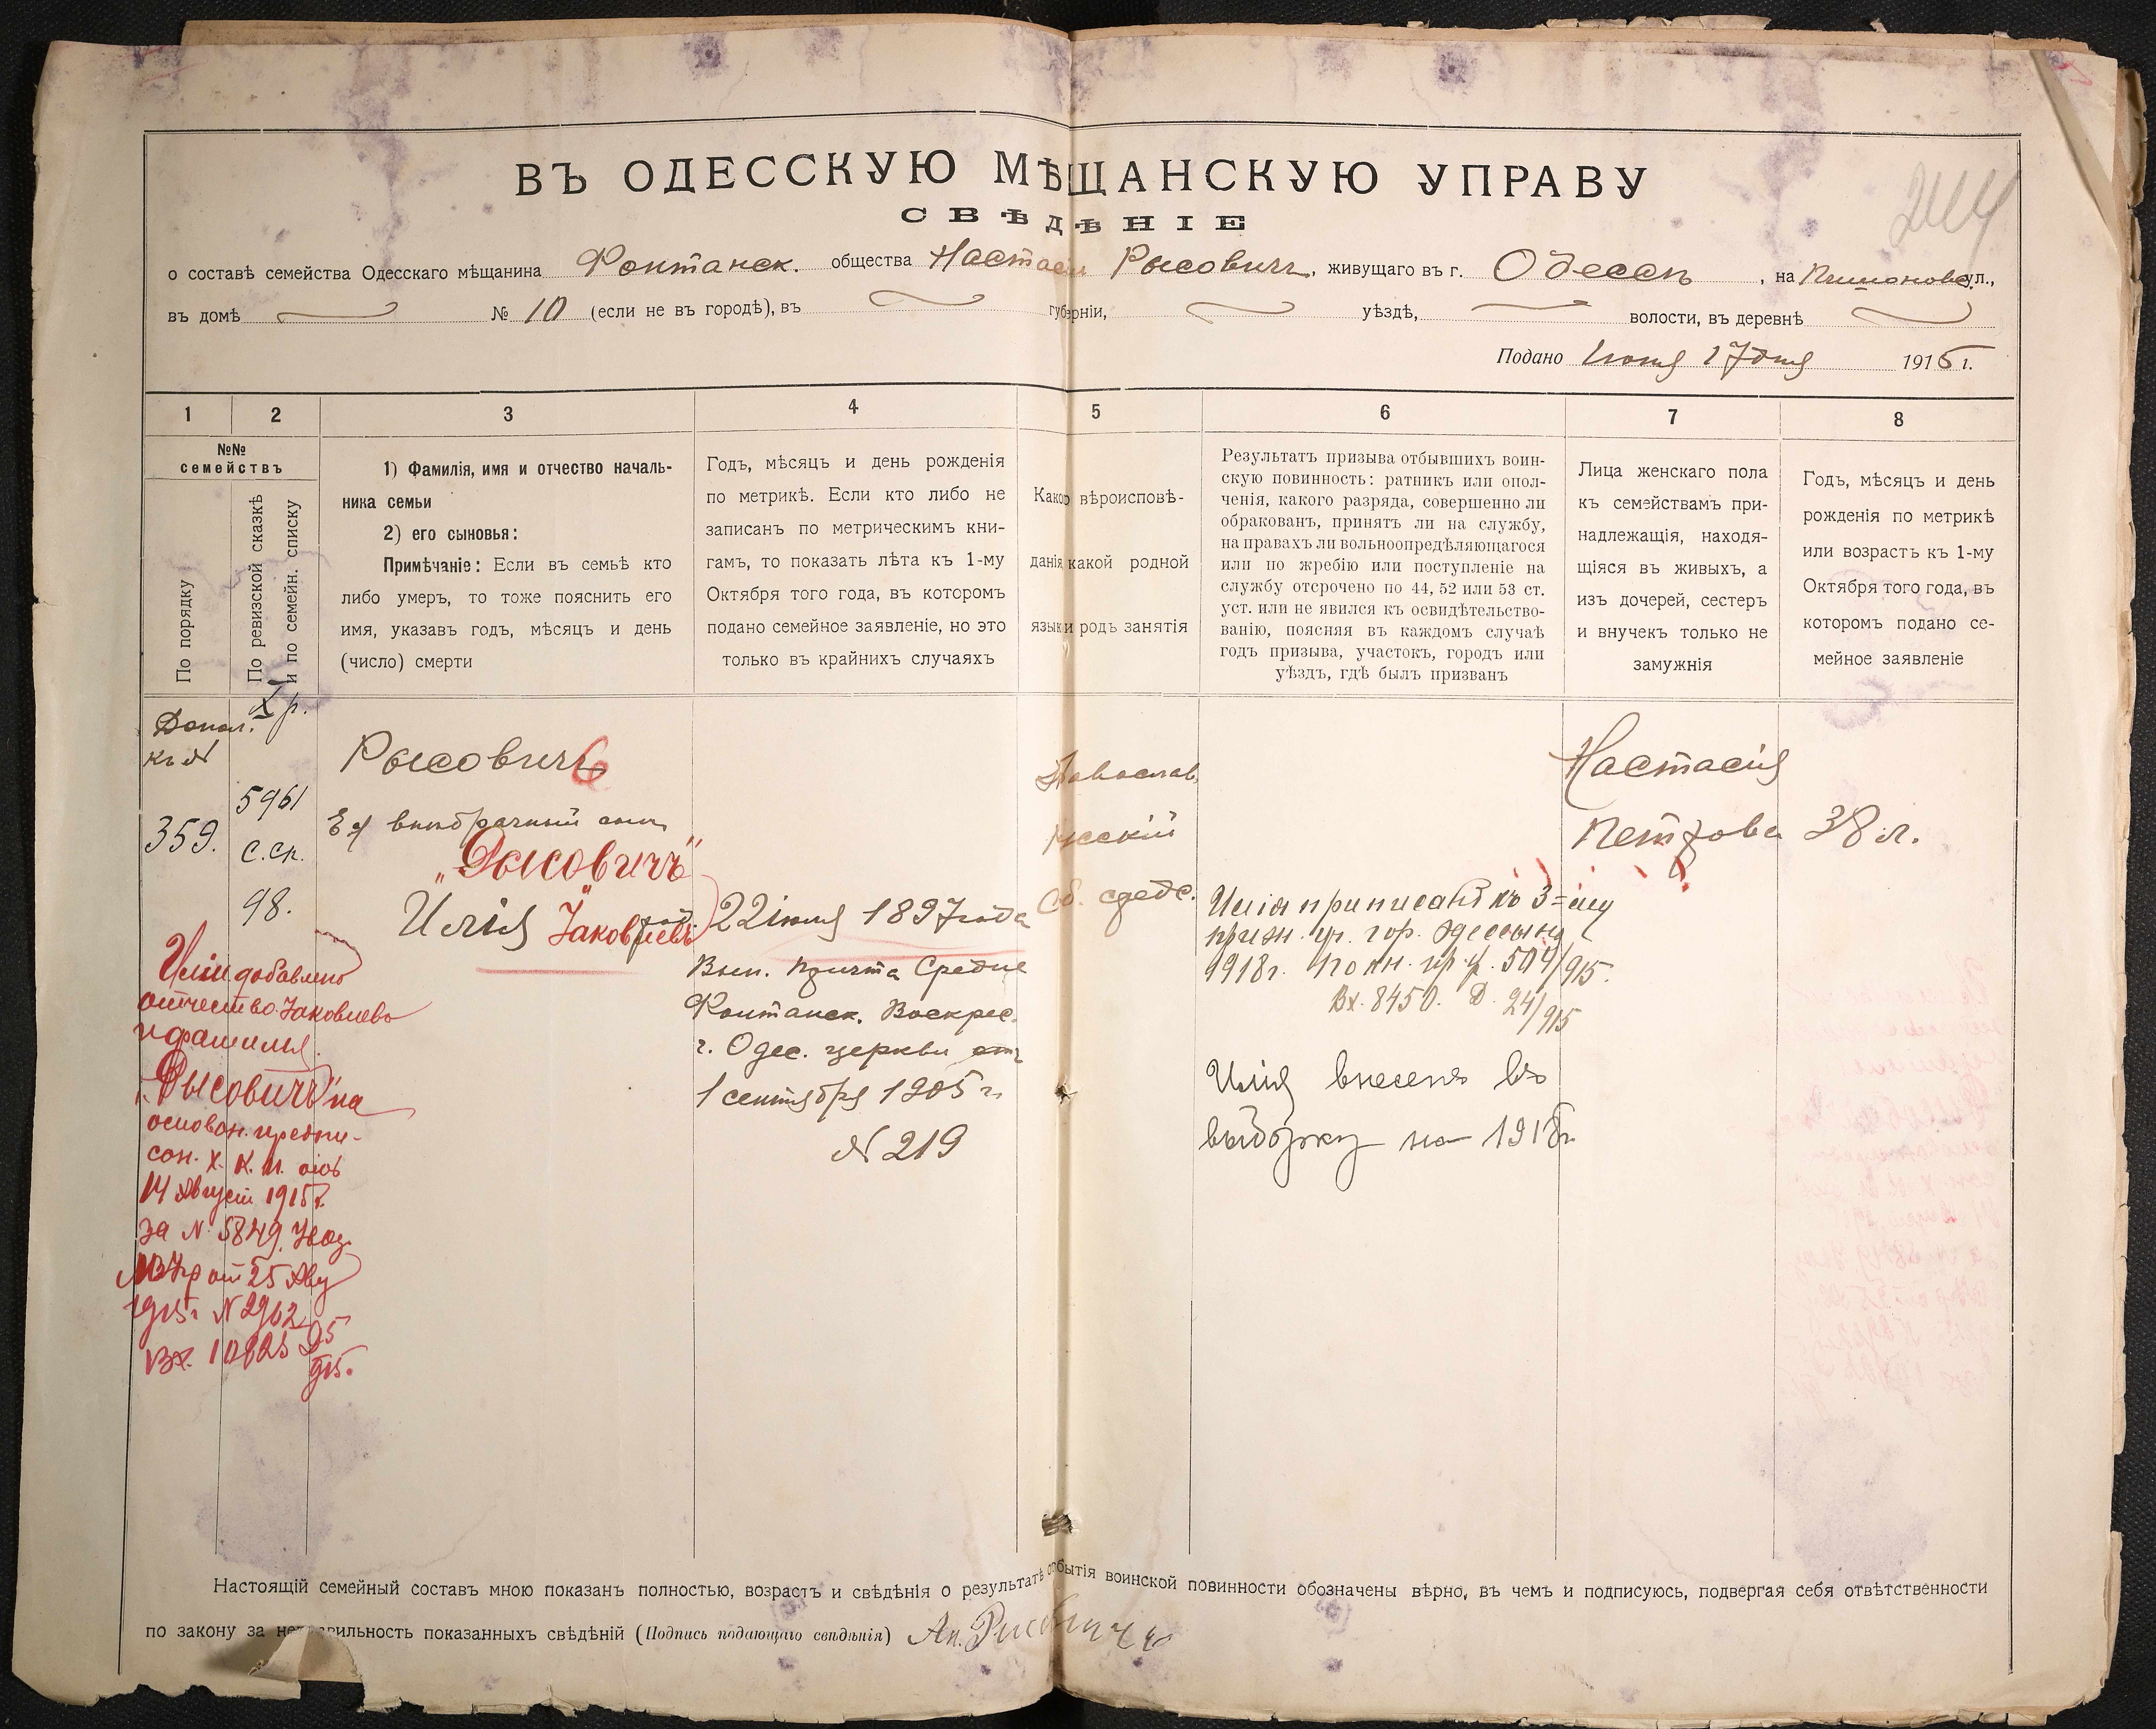 ВЪ ОДЕССКУЮ МѢЩАНСКУЮ УПРАВУ
СВѢДѢНІЕ
о составѣ семейства Одесскаго мѣщанина Фонтанск. общества Настасіи Рысовичъ, живущаго въ г. Одессѣ, на ул.,
въ домѣ № 10 (если не въ городѣ), въ губерніи, уѣздѣ, волости, въ деревнѣ
Подано 17 дня 1915 г.
1 2 3 4 5 6 7 8
№№
семействъ
По порядку
По ревизской сказкѣ
и по семейн. списку
1) Фамилія, имя и отчество началь-
ника семьи
2) его сыновья:
Примѣчаніе: Если въ семьѣ кто
либо умеръ, то тоже пояснить его
имя, указавъ годъ, мѣсяцъ и день
(число) смерти
Годъ, мѣсяцъ и день рожденія
по метрикѣ. Если кто либо не
записанъ по метрическимъ кни-
гамъ, то показать лѣта къ 1-му
Октября того года, въ которомъ
подано семейное заявленіе, но это
только въ крайнихъ случаяхъ
Какого вѣроисповѣ-
данія какой родной
языкъ и родъ занятія
Результатъ призыва отбывшихъ воин-
скую повинность: ратникъ или опол-
ченія, какого разряда, совершенно ли
обракованъ, принятъ ли на службу,
на правахъ ли вольноопредѣляющагося
или по жребію или поступленіе на
службу отсрочено по 44, 52 или 53 ст.
уст. или не явился къ освидѣтельство-
ванію, поясняя въ каждомъ случаѣ
годъ призыва, участокъ, городъ или
уѣздъ, гдѣ былъ призванъ
Лица женскаго пола
къ семействамъ при-
надлежащія, находя-
щіяся въ живыхъ, а
изъ дочерей, сестеръ
и внучекъ только не
замужнія
Годъ, мѣсяцъ и день
рожденія по метрикѣ
или возрастъ къ 1-му
Октября того года, въ
которомъ подано се-
мейное заявленіе
Допол.
къ №
359.
X р.
5961
с.сп.
98.
Рысовичъ 6
Ея внѣбрачный сынъ
„Рысовичъ"
Илія Іаковлевъ
22 іюля 1897 года
Вып. причта Средне
Фонтанск. Воскрес.
г. Одес. церкви отъ
1 сентября 1905 г.
№ 219
Православ.
русскій
Об. средс.
Илія приписанъ къ 3=му
приз. уч. гор. Одессы на
1918 г. по кн. пр. у. 504/915.
Вх. 8450. Д. 24/915
Илія внесенъ въ
выборку на 1918 г.
Настасія
Петрова
38 л.
Иліи добавлено
отчество Іаковлевъ
и фамилія
„Рысовичъ" на
основан. предпи-
сан. Х. К. П. отъ
14 Августа 1915 г.
за № 5849.
от 25 Авг
1915 г № 2902
Вх. Д 5
915.
Настоящій семейный составъ мною показанъ полностью, возрастъ и свѣдѣнія о результатѣ отбытія воинской повинности обозначены вѣрно, въ чемъ и подписуюсь, подвергая себя отвѣтственности
по закону за неправильность показанныхъ свѣдѣній (Подпись подающаго свѣдѣнія) Ан. Рысовичъ